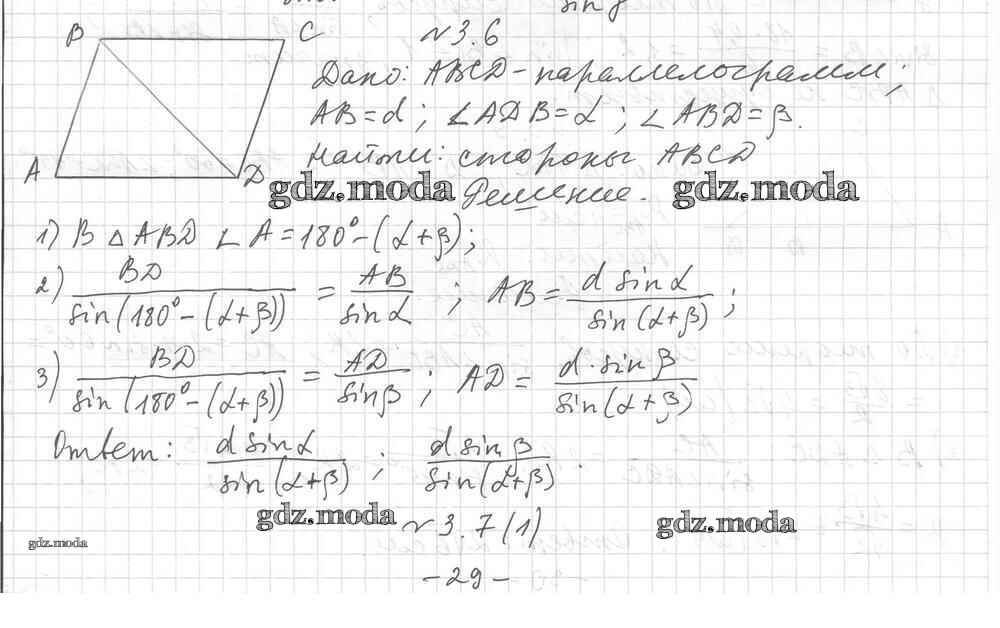 sin γ
B
C
A
D
№3.6
Дано: ABCD - параллелограмм;
AB = d; ∠ADB = α; ∠ABD = β.
Найти: стороны ABCD
gdz.moda Решение. gdz.moda
1) В △ABD ∠A = 180° - (α + β);
2) BD / sin(180° - (α + β)) = AB / sin α; AB = d sin α / sin(α + β);
3) BD / sin(180° - (α + β)) = AD / sin β; AD = d · sin β / sin(α + β)
Ответ: d sin α / sin(α + β); d sin β / sin(α + β).
gdz.moda №3.7(1) gdz.moda
gdz.moda
- 29 -